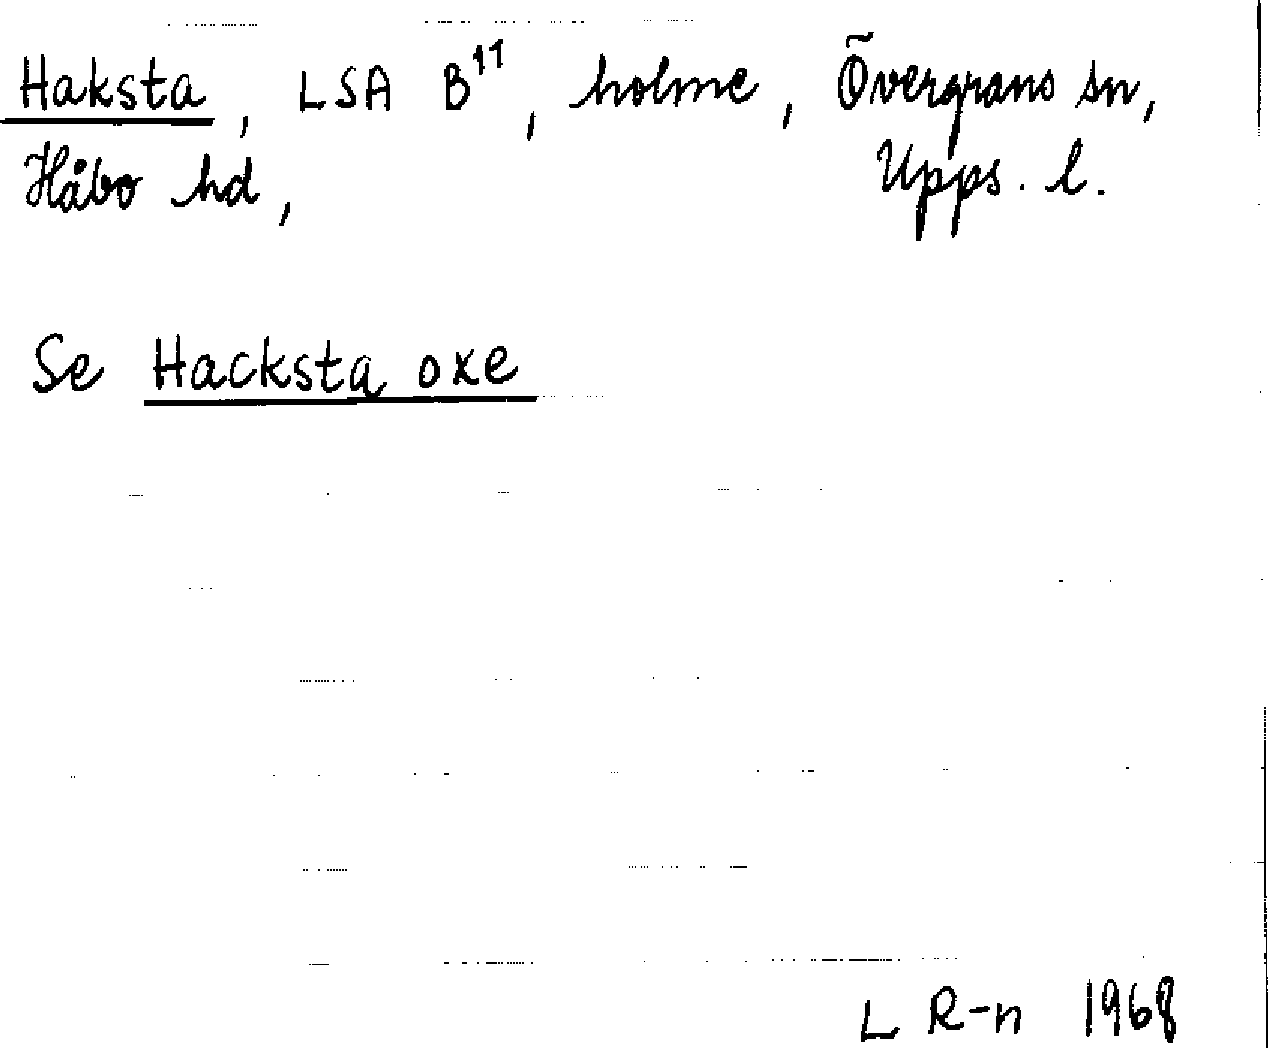 Haksta, LSA B¹¹, holme, Övergrans sn,
Håbo hd, Upps. l.
Se Hacksta oxe
L R-n 1968